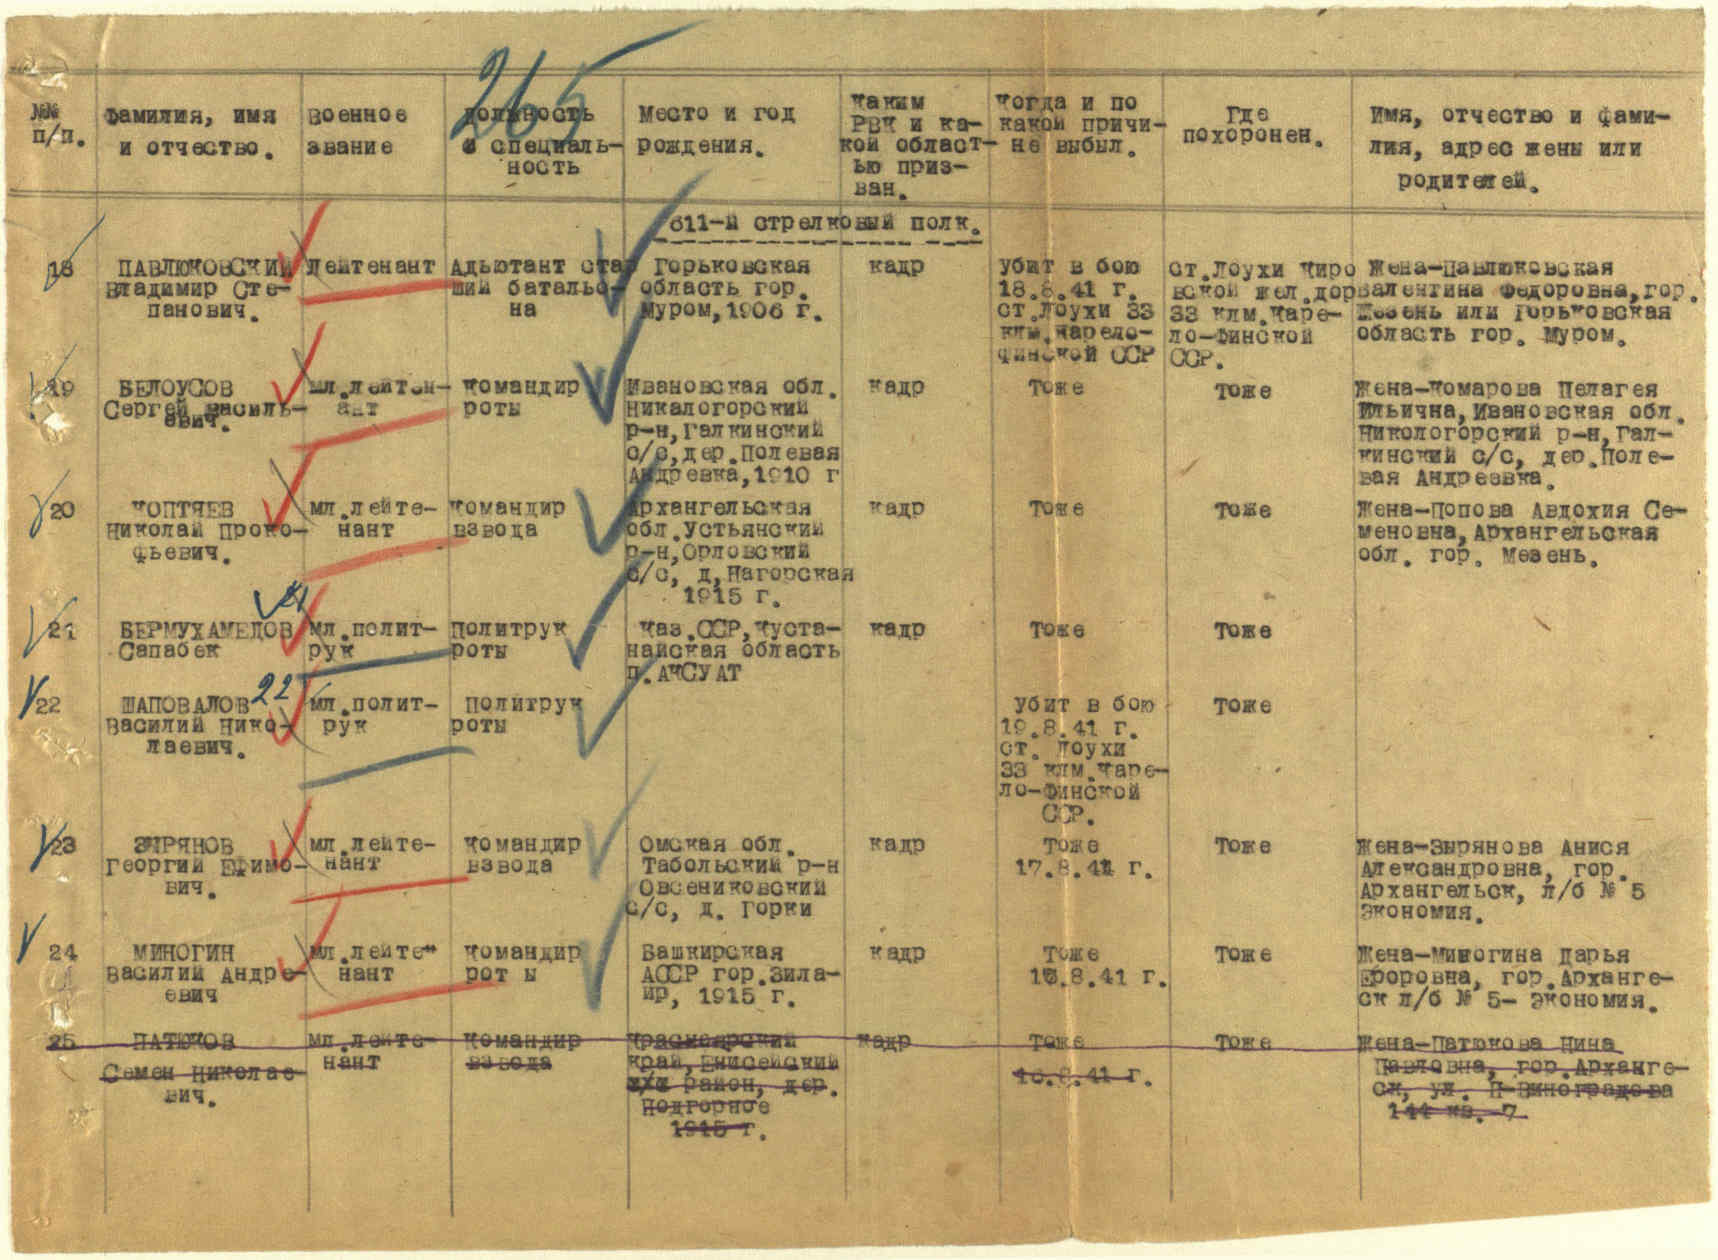 265
№№
п/п.
Фамилия, имя
и отчество.
Военное
звание
Должность
и специаль-
ность
Место и год
рождения.
Каким
РВК и ка-
кой област-
ью приз-
ван.
Когда и по
какой причи-
не выбыл.
Где
похоронен.
Имя, отчество и фами-
лия, адрес жены или
родителей.
611-й стрелковый полк.
18
ПАВЛЮКОВСКИЙ
Владимир Сте-
панович.
Лейтенант
Адьютант стар
ший батальо-
на
Горьковская
область гор.
Муром, 1906 г.
кадр
Убит в бою
18.8.41 г.
ст.Лоухи 33
клм.Карело-
финской ССР
ст.Лоухи Киро
вской жел.дор
33 клм.Каре-
ло-Финской
ССР.
Жена-Павлюковская
Валентина Федоровна, гор.
Мезень или Горьковская
область гор. Муром.
19
БЕЛОУСОВ
Сергей Василь-
евич.
мл.лейтен-
ант
Командир
роты
Ивановская обл.
Никалогорский
р-н, Галкинский
с/с, дер.Полевая
Андревка, 1910 г
кадр
Тоже
Тоже
Жена-Комарова Пелагея
Ильична, Ивановская обл.
Никологорский р-н, Гал-
кинский с/с, дер.Поле-
вая Андреевка.
20
КОПТЯЕВ
Николай Проко-
фьевич.
мл.лейте-
нант
Командир
взвода
Архангельская
обл.Устьянский
р-н, Орловский
с/с, д, Нагорская
1915 г.
кадр
Тоже
Тоже
Жена-Попова Авдохия Се-
меновна, Архангельская
обл. гор. Мезень.
21
21
БЕРМУХАМЕДОВ
Сапабек
мл.полит-
рук
Политрук
роты
Каз.ССР, Куста-
найская область
п.АКСУАТ
кадр
Тоже
Тоже
22
22
ШАПОВАЛОВ
Василий Нико-
лаевич.
мл.полит-
рук
Политрук
роты
Убит в бою
19.8.41 г.
ст. Лоухи
33 клм.Каре-
ло-Финской
ССР.
Тоже
23
ЗЫРЯНОВ
Георгий Ефимо-
вич.
мл.лейте-
нант
Командир
взвода
Омская обл.
Табольский р-н
Овсениковский
с/с, д. Горки
кадр
Тоже
17.8.41 г.
Тоже
Жена-Зырянова Анися
Александровна, гор.
Архангельск, л/б № 5
Экономия.
24
МИНОГИН
Василий Андре-
евич
мл.лейте-
нант
Командир
рот ы
Башкирская
АССР гор.Зила-
ир, 1915 г.
кадр
Тоже
Тоже
Жена-Миногина Дарья
Егоровна, гор.Арханге-
ск л/б № 5- Экономия.
25
ПАТЮКОВ
Семен Николае-
вич.
мл.лейте-
нант
Командир
взвода
Красноярский
край, Енисейский
район, дер.
Подгорное
1915 г.
кадр
Тоже
16.8.41 г.
Тоже
Жена-Патюкова Нина
Павловна, гор.Арханге-
ск, ул. П-Виноградова
144 кв. 7